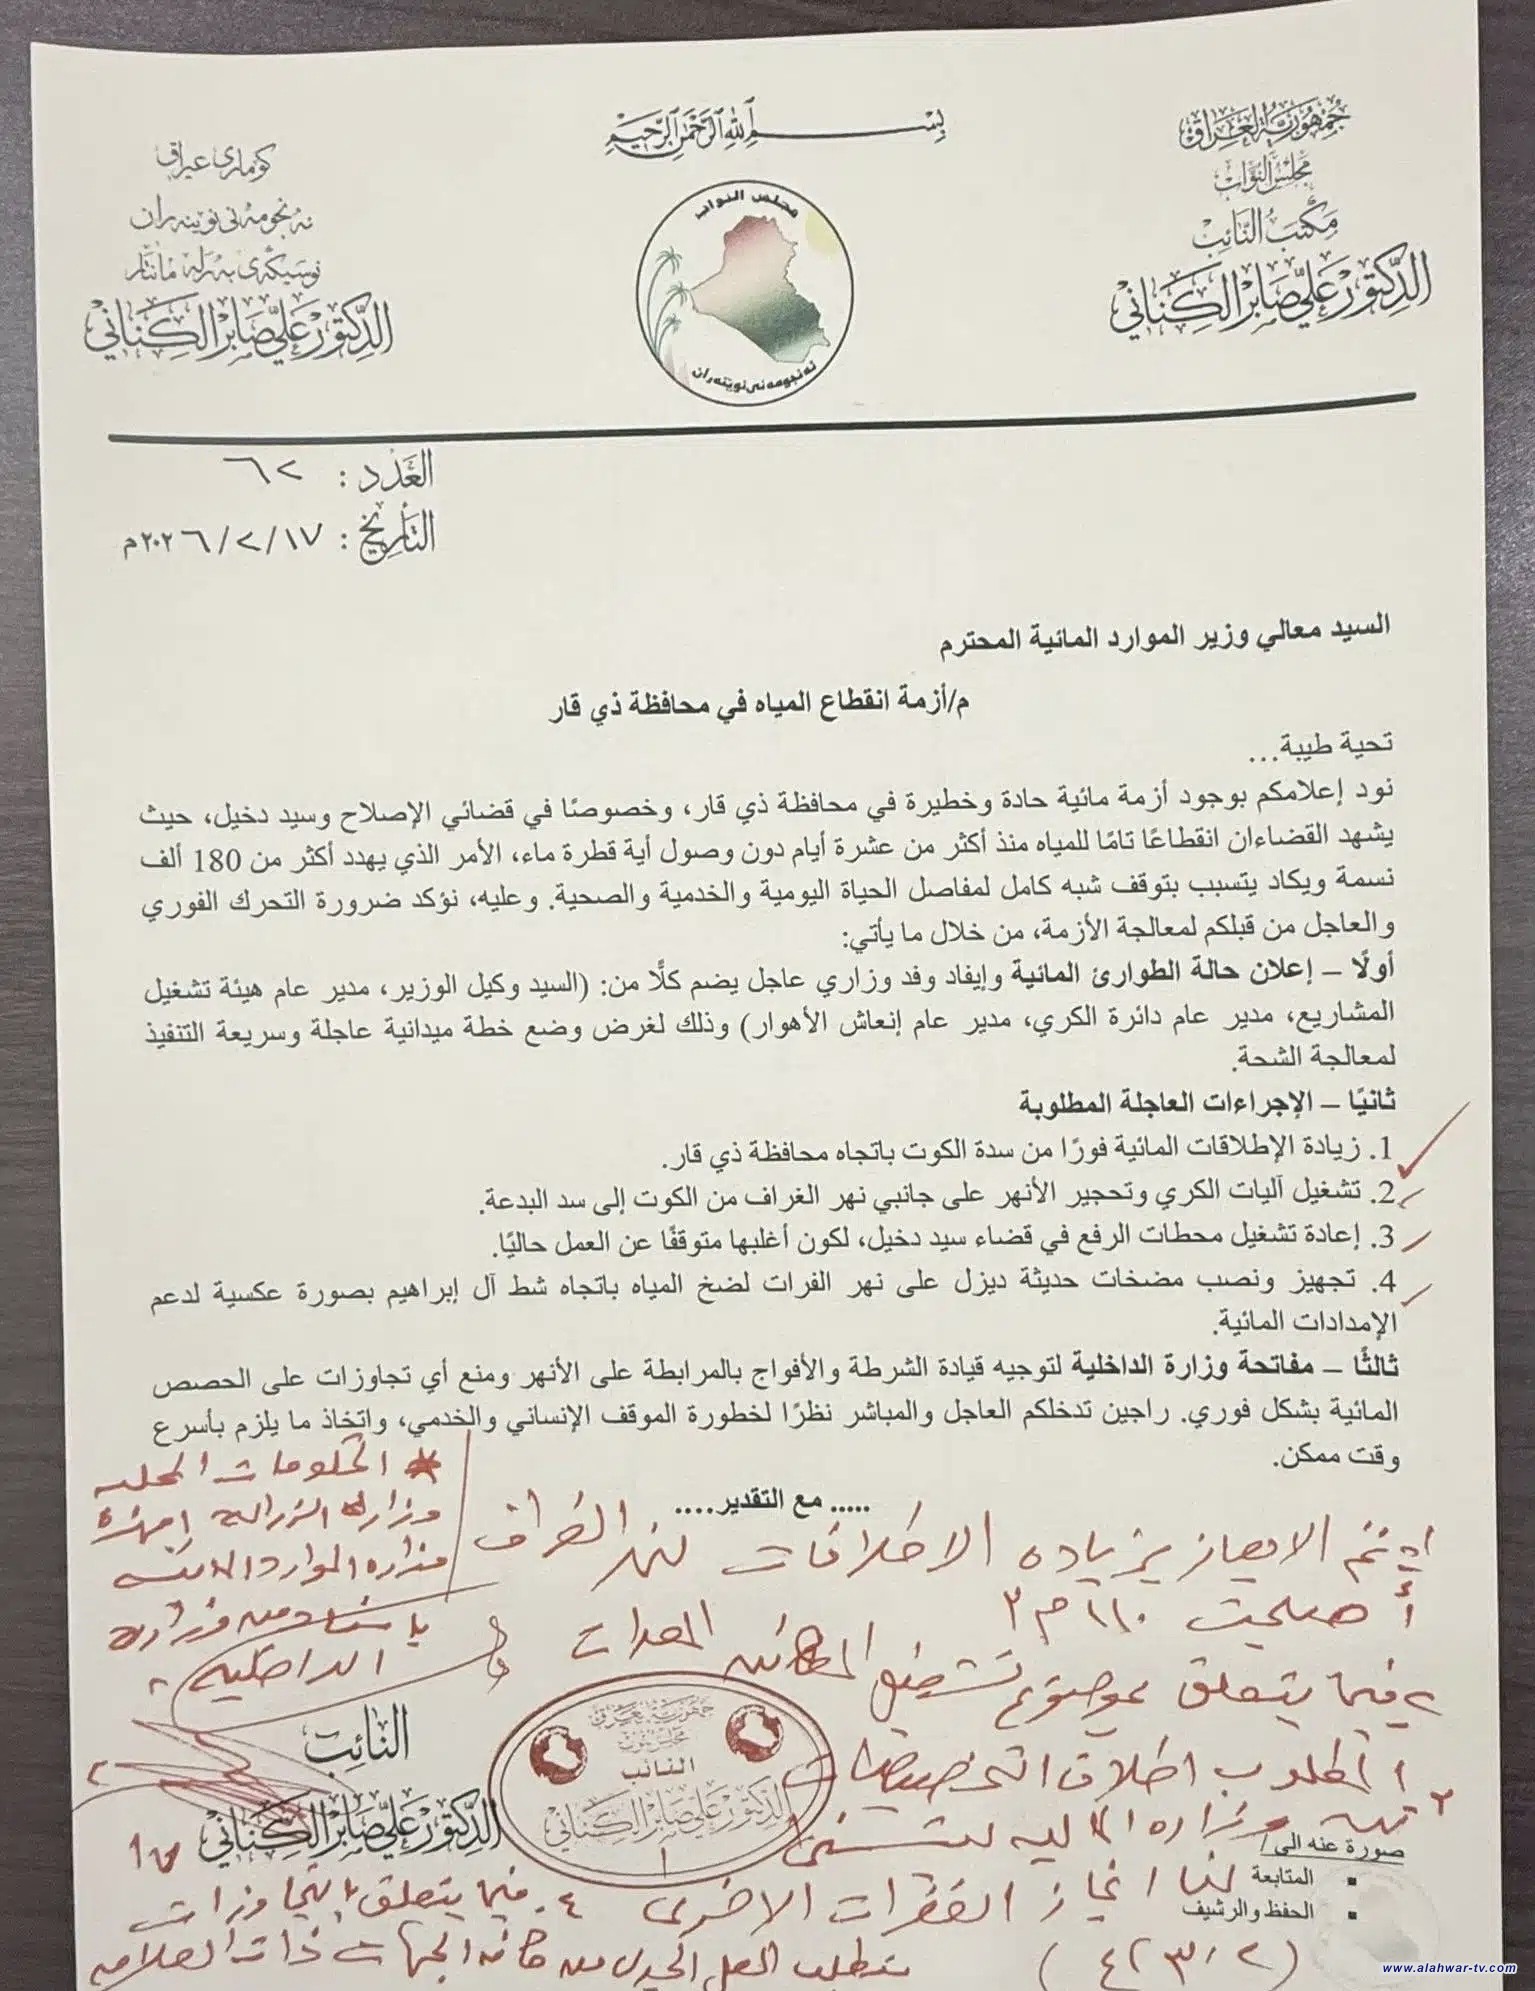 بسم الله الرحمن الرحيم
جمهورية العراق
مجلس النواب
مكتب النائب
الدكتور علي صابر الكناني
مجلس النواب
ئه نجومه نى نوينه ران
كوماري عيراق
ئه نجومه نى نوينه ران
نوسينگه ى به رله مانتار
الدكتور علي صابر الكناني
العدد : ٦٢
التأريخ : ٢٠٢٦/٢/١٧م
السيد معالي وزير الموارد المائية المحترم
م/أزمة انقطاع المياه في محافظة ذي قار
تحية طيبة...
نود إعلامكم بوجود أزمة مائية حادة وخطيرة في محافظة ذي قار، وخصوصًا في قضائي الإصلاح وسيد دخيل، حيث
يشهد القضاءان انقطاعًا تامًا للمياه منذ أكثر من عشرة أيام دون وصول أية قطرة ماء، الأمر الذي يهدد أكثر من 180 ألف
نسمة ويكاد يتسبب بتوقف شبه كامل لمفاصل الحياة اليومية والخدمية والصحية. وعليه، نؤكد ضرورة التحرك الفوري
والعاجل من قبلكم لمعالجة الأزمة، من خلال ما يأتي:
أولًا – إعلان حالة الطوارئ المائية وإيفاد وفد وزاري عاجل يضم كلًا من: (السيد وكيل الوزير، مدير عام هيئة تشغيل
المشاريع، مدير عام دائرة الكري، مدير عام إنعاش الأهوار) وذلك لغرض وضع خطة ميدانية عاجلة وسريعة التنفيذ
لمعالجة الشحة.
ثانيًا – الإجراءات العاجلة المطلوبة
1. زيادة الإطلاقات المائية فورًا من سدة الكوت باتجاه محافظة ذي قار.
2. تشغيل آليات الكري وتحجير الأنهر على جانبي نهر الغراف من الكوت إلى سد البدعة.
3. إعادة تشغيل محطات الرفع في قضاء سيد دخيل، لكون أغلبها متوقفًا عن العمل حاليًا.
4. تجهيز ونصب مضخات حديثة ديزل على نهر الفرات لضخ المياه باتجاه شط آل إبراهيم بصورة عكسية لدعم
الإمدادات المائية.
ثالثًا – مفاتحة وزارة الداخلية لتوجيه قيادة الشرطة والأفواج بالمرابطة على الأنهر ومنع أي تجاوزات على الحصص
المائية بشكل فوري. راجين تدخلكم العاجل والمباشر نظرًا لخطورة الموقف الإنساني والخدمي، واتخاذ ما يلزم بأسرع
وقت ممكن.
..... مع التقدير....
* الحكومات المحلية
وزارة الزراعة اجهزة
وزاره الموارد المائية
باسناد من وزارة
الداخلية
تم الايعاز بزياده الاطلاقات لنهر الغراف
أصبحت ١١٠ م٣
٢ فيما يتعلق بموضوع تشغيل المعدات
المطلوب اطلاق التخصيصات
من وزاره المالية
لنا انجاز الفقرات الاخرى
٤. فيما يتعلق بالتجاوزات
تتطلب العمل الجدي من كافة الجهات ذات العلاقه
(٢،٣،٤)
النائب
الدكتور علي صابر الكناني
جمهورية العراق
مجلس النواب
النائب
الدكتور علي صابر الكناني
١
صورة عنه الى/
▪ المتابعة
▪ الحفظ والرشيف
www.alahwar-tv.com